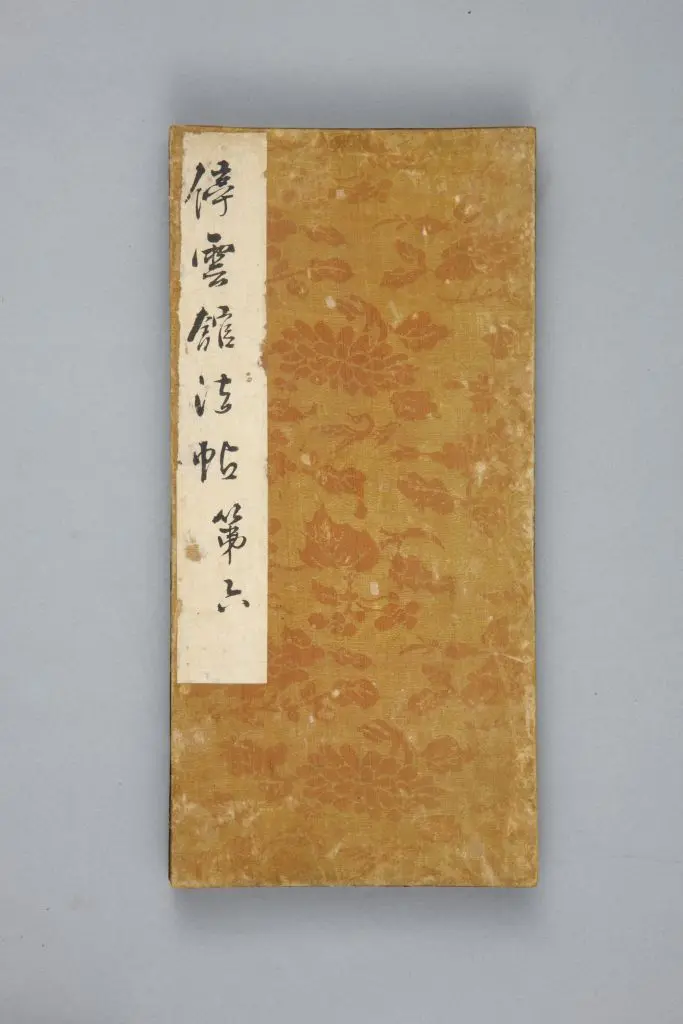 停雲館法帖第六